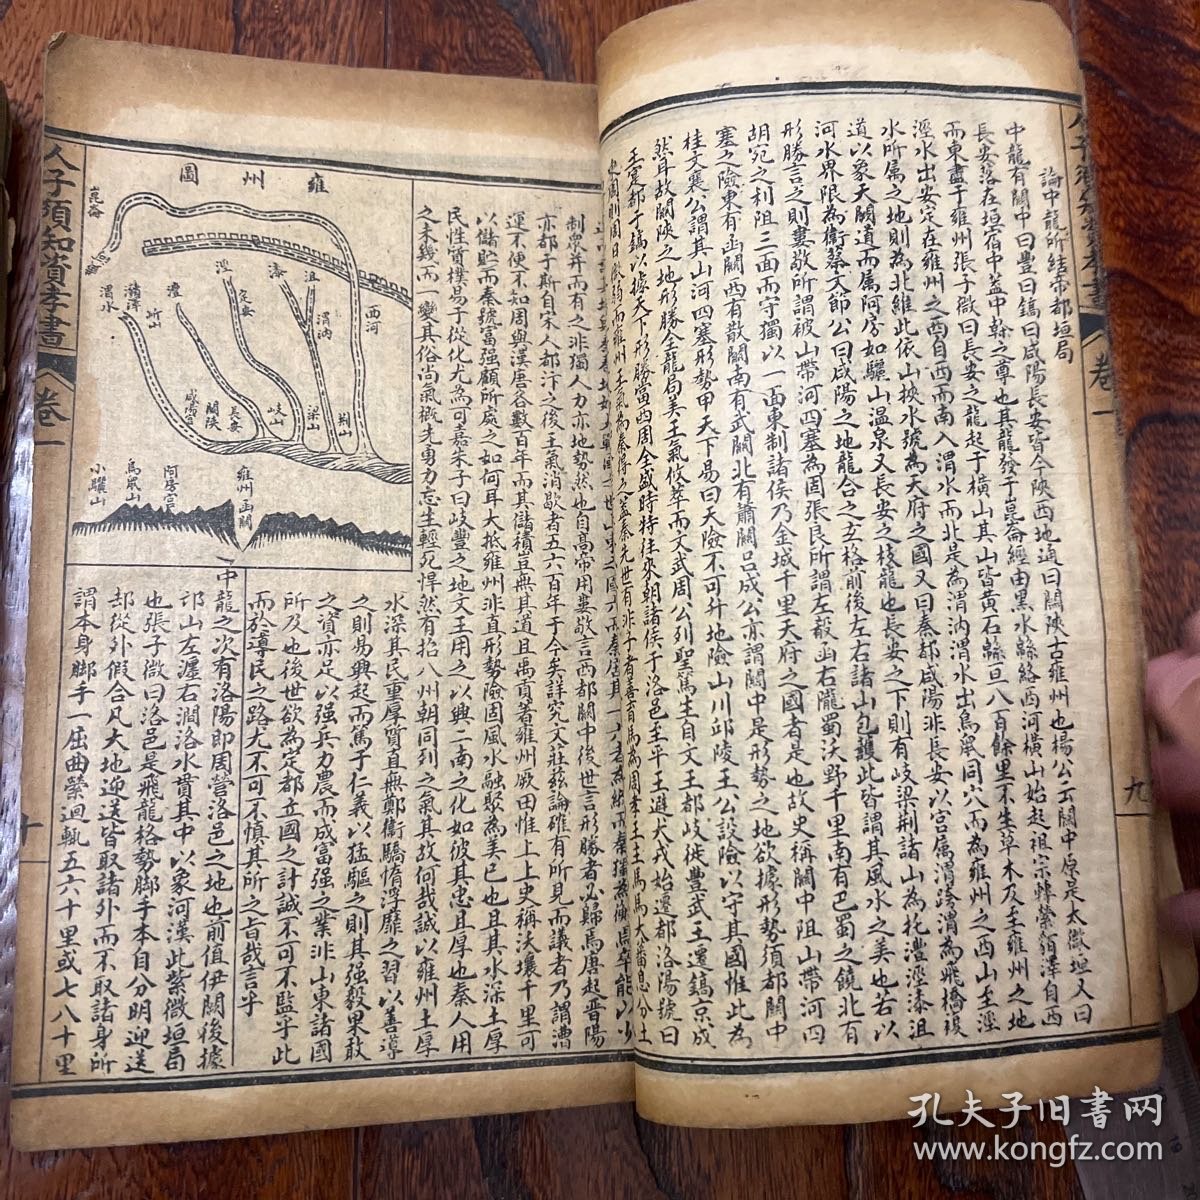 論中龍所結帝都垣局
中龍有關中曰豐曰鎬曰咸陽長安皆今陝西地通曰關陝古雍州也楊公云關中原是太微垣又曰
長安落在垣宿中蓋中幹之尊也其龍發于崑崙經由黑水綿絡西河橫山始起祖宗
而東盡于雍州張子微曰長安之龍起于橫山其山皆黃石綿亘八百餘里不生草木及至雍州之地
涇水出安定在雍州之西自西而南入渭水而北是為渭汭渭水出鳥鼠同穴而為雍州之西山至涇
水所屬之地則為北維此依山挾水號為天府之國又曰秦都咸陽非長安以宮屬渭為飛橋複
道以象天閣道而屬阿房如驪山溫泉又長安之枝龍也長安之下則有岐梁荆諸山為托灃涇漆沮
河水界限為衛蔡文節公曰咸陽之地龍合之主格前後左右諸山包護此皆謂其風水之美也若以
形勝言之則婁敬所謂被山帶河四塞為固張良所謂左殽函右隴蜀沃野千里南有巴蜀之饒北有
胡宛之利阻三面而守獨以一面東制諸侯乃金城千里天府之國者是也故史稱關中阻山帶河四
塞之險東有函關西有散關南有武關北有蕭關呂成公亦謂關中是形勢之地欲據形勢須都關中
桂文襄公謂其山河四塞形勢甲天下易曰天險不可升地險山川邱陵王公設險以守其國惟此為
然耳故關陝之地形勝全龍局美王氣攸萃而文武周公列聖篤生自文王都岐徙豐武王遷鎬京成
王定都于鎬以據天下形勝當西周全盛時特往來朝諸侯于洛邑至平王避犬戎始遷都洛陽號曰
制
亦都于斯自宋人都汴之後王氣消歇者五六百年于今矣詳究文莊兹論確有所見而議者乃謂漕
運不便不知周與漢唐各數百年而其儲積豈無其道且禹貢著雍州厥田惟上上史稱沃壤千里可
以儲貯而秦號富强顧所處之如何耳大抵雍州非直形勢險固風水融聚為美已也且其水深土厚
民性質樸易于從化尤為可嘉朱子曰岐豐之地文王用之以興二南之化如彼其忠且厚也秦人用
之未幾而一變其俗尚氣概先勇力忘生輕死悍然有招八州朝同列之氣其故何哉誠以雍州土厚
水深其民重厚質直無鄭衛驕惰浮靡之習以善導
之則易興起而篤于仁義以猛驅之則其强毅果敢
之資亦足以强兵力農而成富强之業非山東諸國
所及也後世欲為定都立國之計誠不可不監乎此
而於導民之路尤不可不慎其所之旨哉言乎
一中龍之次有洛陽即周營洛邑之地也前值伊闕後據
邙山左瀍右澗洛水貫其中以象河漢此紫微垣局
也張子微曰洛邑是飛龍格勢脚手本自分明迎送
却從外假合凡大地迎送皆取諸外而不取諸身所
謂本身脚手一屈曲縈迴輒五六十里或七八十里
人子須知資孝書
卷一
十
九
卷一
雍州圖
崑崙
西河
沮
漆
涇
灃
定安
渭汭
岍山
渭水
荆山
梁山
岐山
長安
關陝
咸陽宮
雍州函關
阿房宮
鳥鼠山
小驪山
孔夫子旧书网
www.kongfz.com